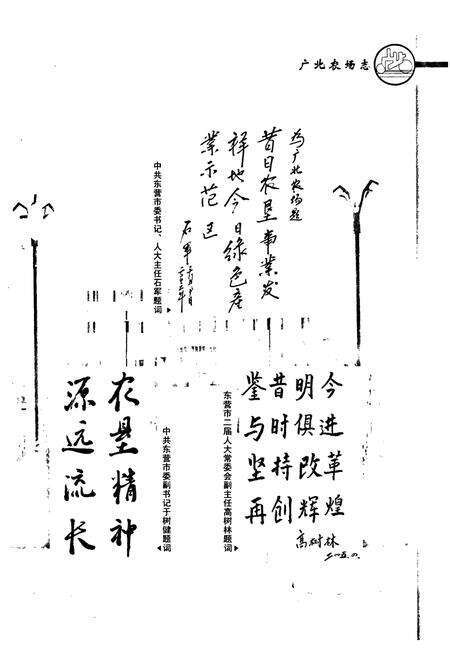 广北农场志
为广北农场题
昔日农垦事業发
祥地今日綠色產
業示范区
石军
中共东营市委书记、人大主任石军题词
鉴昔明今
与时俱进
坚持改革
再创辉煌
高树林
东营市二届人大常委会副主任高树林题词
农垦精神
源远流长
中共东营市委副书记于树健题词